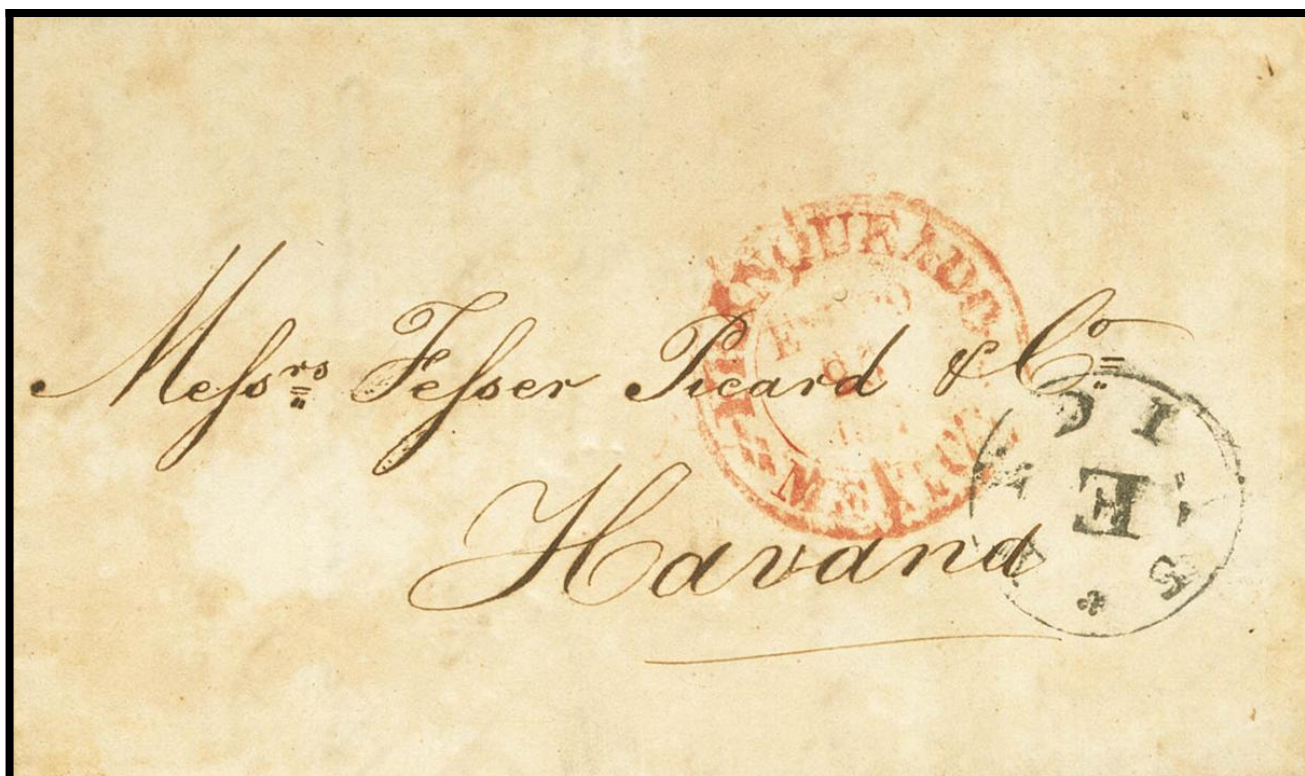 Messrs Fesser Picard & Co
Havana
FRANQUEADO
ENERO
MEXICO
E